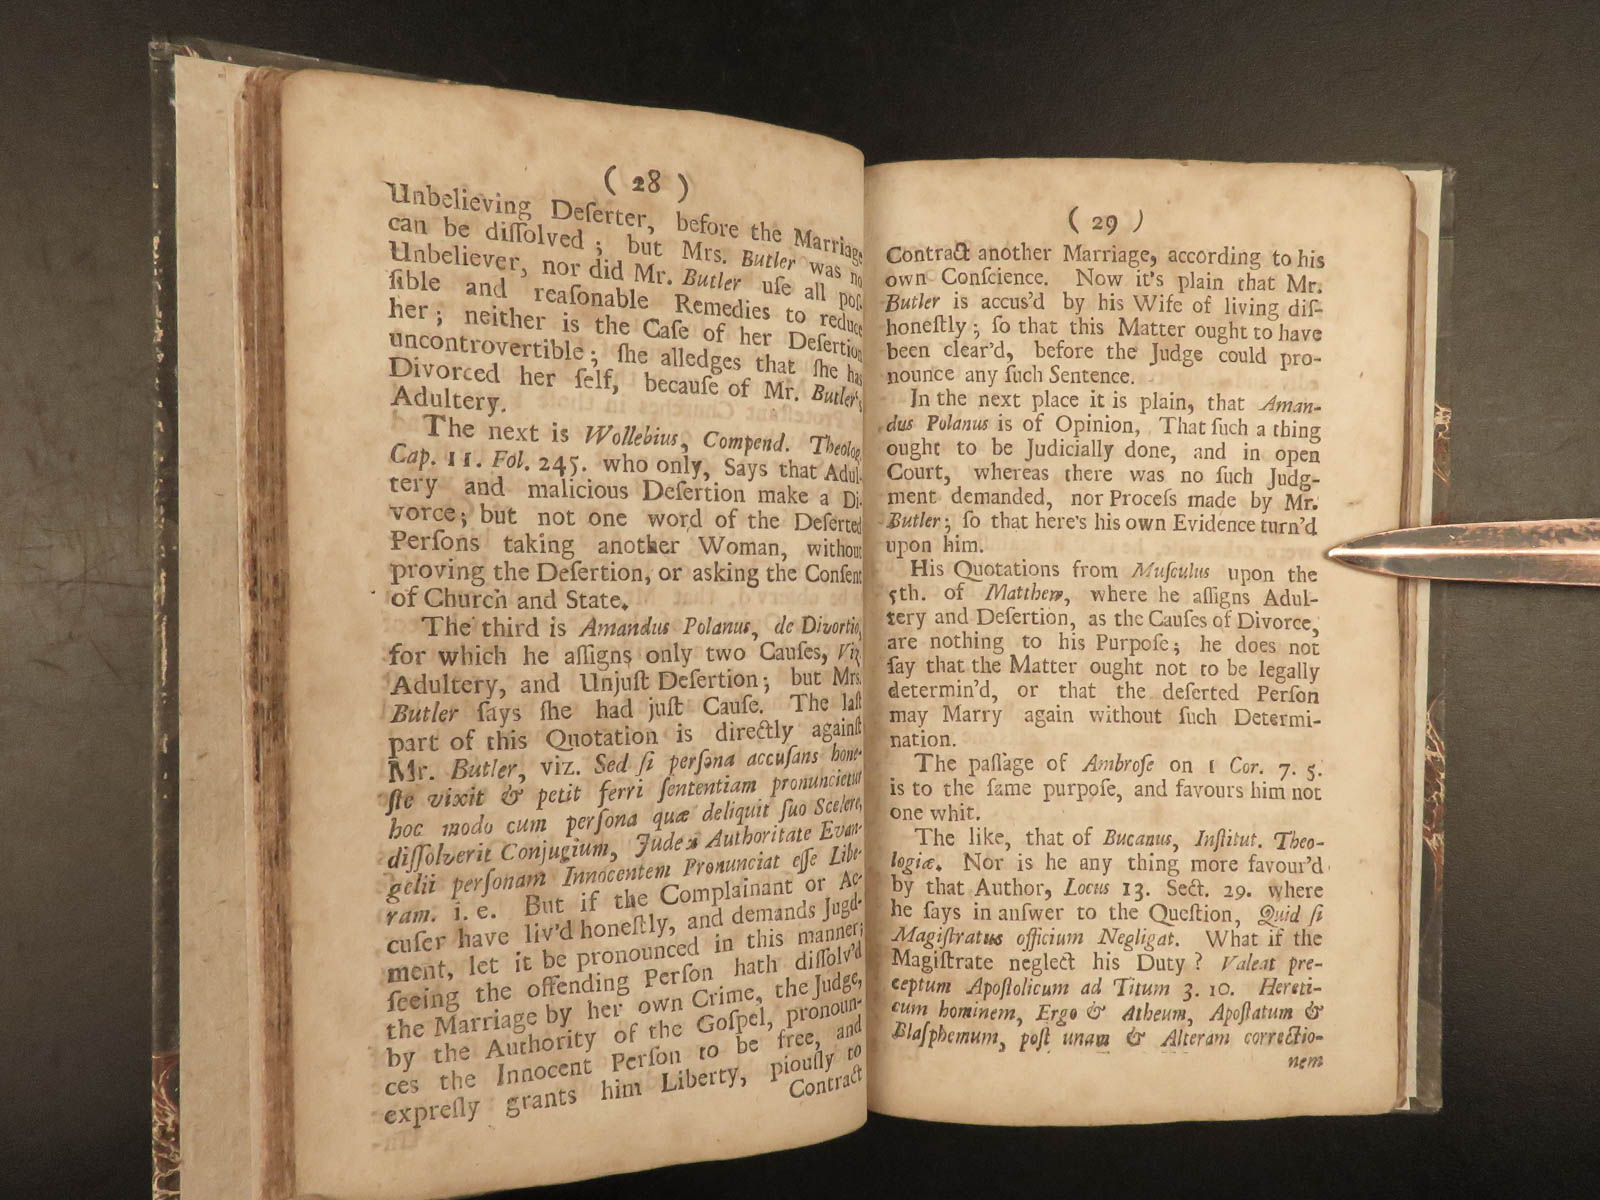 ( 28 )
Unbelieving Deſerter, before the Marriage
can be diſſolved ; but Mrs. Butler was no
Unbeliever, nor did Mr. Butler uſe all poſ-
ſible and reaſonable Remedies to reduce
her ; neither is the Caſe of her Deſertion
uncontrovertible ; ſhe alledges that ſhe has
Divorced her ſelf, becauſe of Mr. Butler's
Adultery.
The next is Wollebius, Compend. Theolog.
Cap. 11. Fol. 245. who only, Says that Adul-
tery and malicious Deſertion make a Di-
vorce; but not one word of the Deſerted
Perſons taking another Woman, without
proving the Deſertion, or asking the Conſent
of Church and State.
The third is Amandus Polanus, de Divortio,
for which he aſſigns only two Cauſes, Viz
Adultery, and Unjuſt Deſertion; but Mrs.
Butler ſays ſhe had juſt Cauſe. The laſt
part of this Quotation is directly againſt
Mr. Butler, viz. Sed ſi perſona accuſans hone-
ſte vixit & petit ferri ſententiam pronuncietur
hoc modo cum perſona quæ deliquit ſuo Scelere,
diſſolverit Conjugium, Judex Authoritate Evan-
gelii perſonam Innocentem Pronunciat eſſe Libe-
ram. i. e. But if the Complainant or Ac-
cuſer have liv'd honeſtly, and demands Jugd-
ment, let it be pronounced in this manner;
ſeeing the offending Perſon hath diſſolv'd
the Marriage by her own Crime, the Judge,
by the Authority of the Goſpel, pronoun-
ces the Innocent Perſon to be free, and
expreſly grants him Liberty, piouſly to
Contract
( 29 )
Contract another Marriage, according to his
own Conſcience. Now it's plain that Mr.
Butler is accus'd by his Wife of living diſ-
honeſtly ; ſo that this Matter ought to have
been clear'd, before the Judge could pro-
nounce any ſuch Sentence.
In the next place it is plain, that Aman-
dus Polanus is of Opinion, That ſuch a thing
ought to be Judicially done, and in open
Court, whereas there was no ſuch Judg-
ment demanded, nor Proceſs made by Mr.
Butler ; ſo that here's his own Evidence turn'd
upon him.
His Quotations from Muſculus upon the
5th. of Matthew, where he aſſigns Adul-
tery and Deſertion, as the Cauſes of Divorce,
are nothing to his Purpoſe ; he does not
ſay that the Matter ought not to be legally
determin'd, or that the deſerted Perſon
may Marry again without ſuch Determi-
nation.
The paſſage of Ambroſe on 1 Cor. 7. 5.
is to the ſame purpoſe, and favours him not
one whit.
The like, that of Bucanus, Inſtitut. Theo-
logiæ. Nor is he any thing more favour'd
by that Author, Locus 13. Sect. 29. where
he ſays in anſwer to the Queſtion, Quid ſi
Magiſtratus officium Negligat. What if the
Magiſtrate neglect his Duty ? Valeat pre-
ceptum Apoſtolicum ad Titum 3. 10. Hereti-
cum hominem, Ergo & Atheum, Apoſtatum &
Blaſphemum, poſt unam & Alteram correctio-
nem